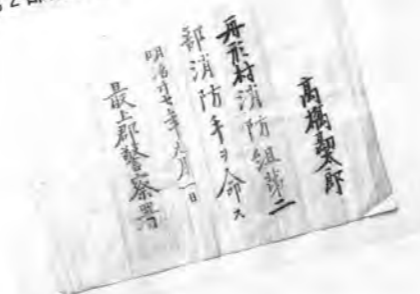 高橋太郎
舟形村消防組第二
部消防手ヲ命ス
明治廿七年
最上郡警察署